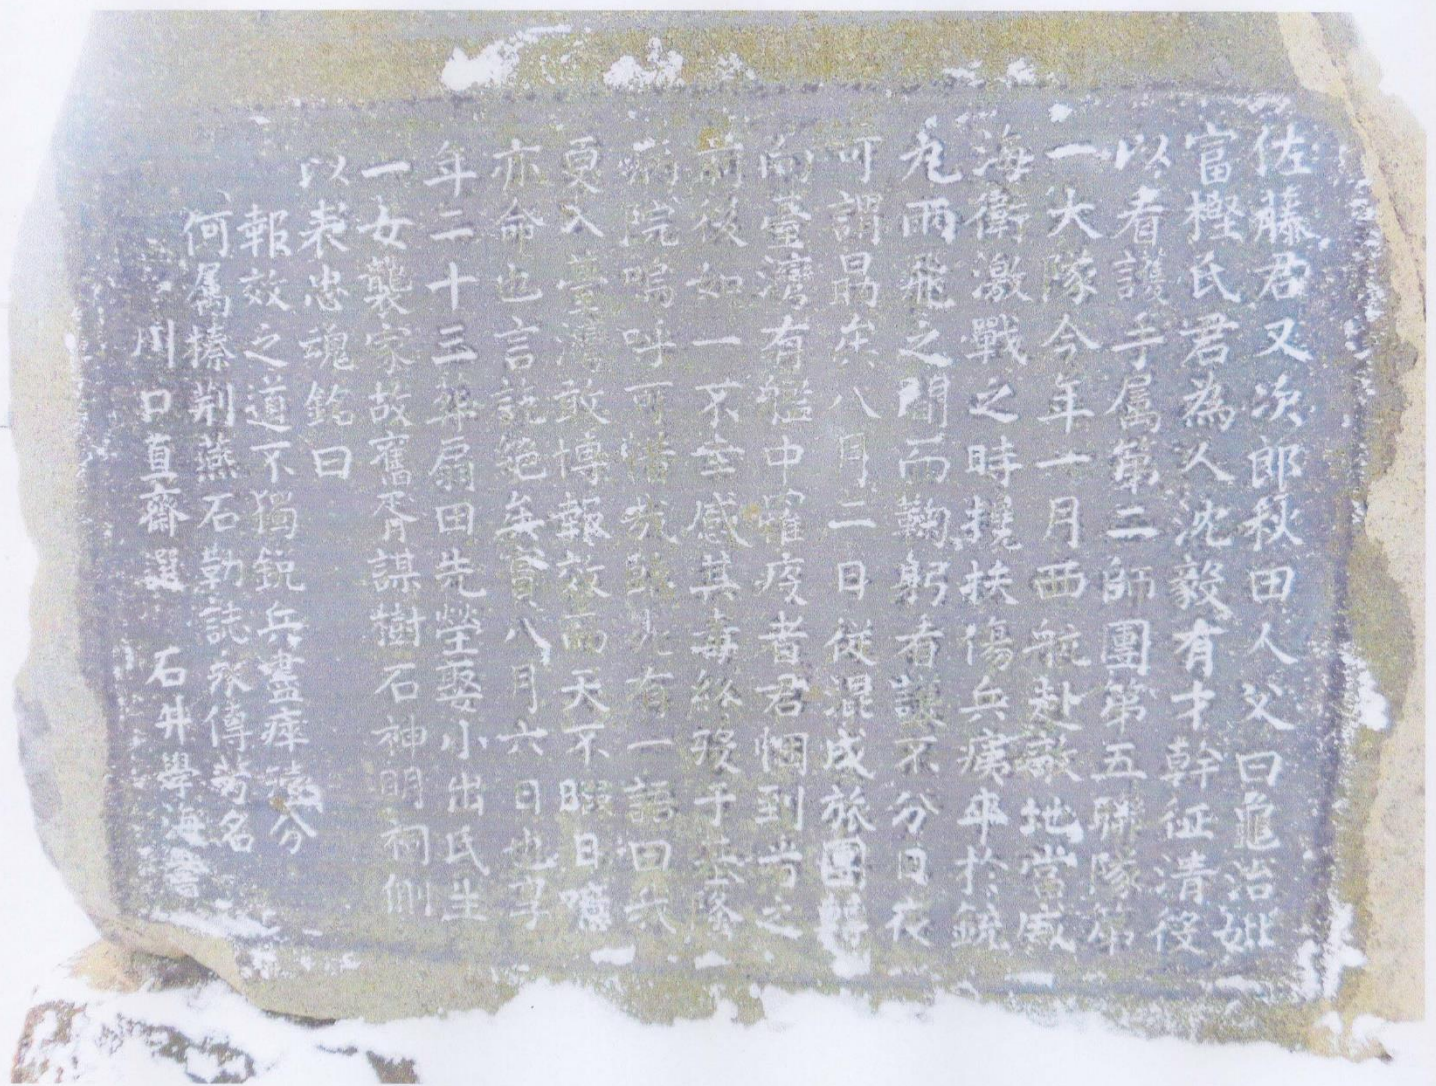 佐藤君又次郎秋田人父曰龜治妣
富樫氏君為人沈毅有才幹征清役
以看護手属第二師團第五聯隊第
一大隊今年一月西航赴敵地當威
海衛激戰之時援扶傷兵痍卒於銃
丸雨飛之間而鞠躬看護不分日夜
可謂勗矣八月二日従混成旅團轉
向臺灣有艦中罹疫者君悃到当之
前後如一不幸感其毒終歿于基隆
病院嗚呼可惜哉臨死有一語曰我
更入臺灣敢博報效而天不暇日噫
亦命也言訖絶矣實八月六日也享
年二十三葬扇田先塋娶小出氏生
一女襲家故舊胥謀樹石神明祠側
以表忠魂銘曰
報效之道不獨鋭兵盡瘁 分
何属榛荆燕石勒誌永傳芳名
川口直齋選 石井學海書